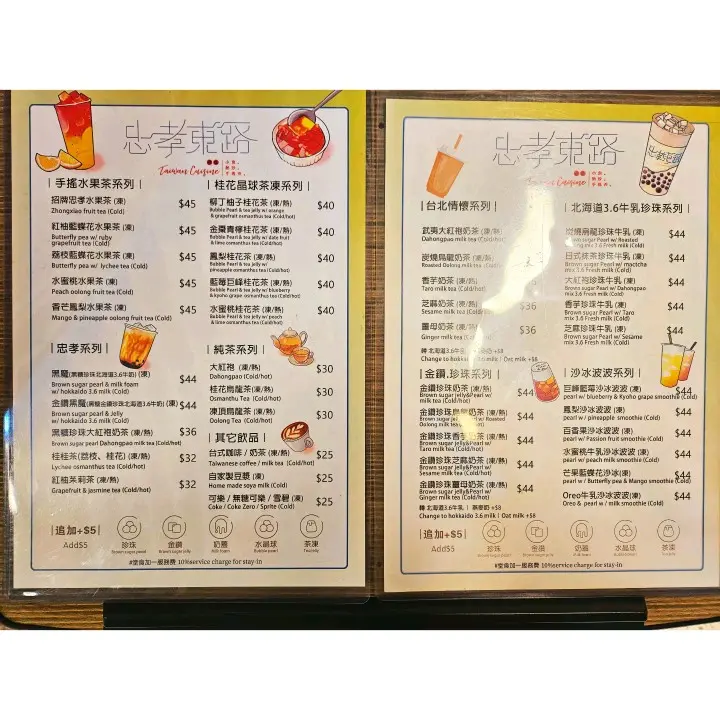 忠孝東路
Taiwan Cuisine
手搖水果茶系列
招牌忠孝水果茶 (凍) $45
Zhongxiao fruit tea (Cold)
紅柚藍蝶花水果茶 (凍) $45
Butterfly pea w/ ruby
grapefruit tea (Cold)
荔枝藍蝶花水果茶 (凍) $45
Butterfly pea w/ lychee tea (Cold)
水蜜桃水果茶 (凍) $45
Peach oolong fruit tea (Cold)
香芒鳳梨水果茶 (凍) $45
Mango & pineapple oolong fruit tea (Cold)
忠孝系列
黑魔(黑糖珍珠北海道3.6牛奶) (凍) $44
Brown sugar pearl & milk foam
w/ hokkaido 3.6 milk (Cold)
金鑽黑魔(黑糖金鑽珍珠北海道3.6牛奶) (凍) $44
Brown sugar pearl & Jelly
w/ hokkaido 3.6 milk (Cold)
黑糖珍珠大紅袍奶茶 (凍/熱) $36
Brown sugar pearl Dahongpao milk tea (Cold/hot)
桂桂茶(荔枝、桂花) (凍/熱) $32
Lychee osmanthus tea (Cold/hot)
紅柚茉莉茶 (凍/熱) $32
Grapefruit & jasmine tea (Cold/hot)
桂花晶球茶凍系列
柳丁柚子桂花茶 (凍/熱) $40
Bubble Pearl & tea jelly w/ orange
& grapefruit osmanthus tea (Cold/hot)
金棗青檸桂花茶 (凍/熱) $40
Bubble Pearl & tea jelly w/ date fruit
& lime osmanthus tea (Cold/hot)
鳳梨桂花茶 (凍/熱) $40
Bubble Pearl & tea jelly w/
pineapple osmanthus tea (Cold/hot)
藍莓巨峰桂花茶 (凍/熱) $40
Bubble Pearl & tea jelly w/ blueberry
& Kyoho grape osmanthus tea (Cold/hot)
水蜜桃桂花茶 (凍/熱) $40
Bubble Pearl & tea jelly w/ peach
& lime osmanthus tea (Cold/hot)
純茶系列
大紅袍 (凍/熱) $30
Dahongpao (Cold/hot)
桂花烏龍茶 (凍/熱) $30
Osmanthu Tea (Cold/hot)
凍頂烏龍茶 (凍/熱) $30
Oolong Tea (Cold/hot)
其它飲品
台式咖啡 / 奶茶 (凍/熱) $25
Taiwanese coffee / milk tea (Cold/hot)
自家製豆漿 (凍/熱) $25
Home made soya milk (Cold)
可樂 / 無糖可樂 / 雪碧 (凍) $25
Coke / Coke Zero / Sprite (Cold)
追加+$5
Add$5
珍珠 金鑽 奶蓋 水晶球 茶凍
Brown sugar pearl Brown sugar jelly Milk foam Bubble pearl Tea jelly
#堂食加一服務費 10%service charge for stay-in
忠孝東路
Cuisine
台北情懷系列
武夷大紅袍奶茶 (凍/熱)
Dahongpao milk tea (Cold/hot)
炭燒烏龍奶茶 (凍/熱)
Roasted Oolong milk tea (Cold/hot)
香芋奶茶 (凍/熱)
Taro milk tea (Cold/hot)
芝麻奶茶 (凍/熱) $36
Sesame milk tea (Cold/hot)
薑母奶茶 (凍/熱) $36
Ginger milk tea (Cold/hot)
轉 北海道3.6牛 +$8
Change to hokkaido 3.6 milk | Oat milk +$8
金鑽.珍珠系列
金鑽珍珠奶茶 (凍/熱) $44
Brown sugar jelly&Pearl w/
milk tea (Cold/hot)
金鑽珍珠烏龍奶茶 (凍/熱) $44
Brown sugar jelly&Pearl w/ Roasted
Oolong milk tea (Cold/hot)
金鑽珍珠香芋奶茶 (凍/熱) $44
Brown sugar jelly&Pearl w/
Taro milk tea (Cold/hot)
金鑽珍珠芝麻奶茶 (凍/熱) $44
Brown sugar jelly&Pearl w/
Sesame milk tea (Cold/hot)
金鑽珍珠薑母奶茶 (凍/熱) $44
Brown sugar jelly&Pearl w/
Ginger milk tea (Cold/hot)
轉 北海道3.6牛乳 | 燕麥奶 +$8
Change to hokkaido 3.6 milk | Oat milk +$8
北海道3.6牛乳珍珠系列
炭燒烏龍珍珠牛乳 (凍) $44
Brown sugar Pearl w/ Roasted
Oolong mix 3.6 Fresh milk (Cold)
日式抹茶珍珠牛乳 (凍) $44
Brown sugar Pearl w/ matcha
mix 3.6 Fresh milk (Cold)
大紅袍珍珠牛乳 (凍) $44
Brown sugar Pearl w/ Dahongpao
mix 3.6 Fresh milk (Cold)
香芋珍珠牛乳 (凍) $44
Brown sugar Pearl w/ Taro
mix 3.6 Fresh milk (Cold)
芝麻珍珠牛乳 (凍) $44
Brown sugar Pearl w/ Sesame
mix 3.6 Fresh milk (Cold)
沙冰波波系列
巨峰藍莓沙冰波波 (凍) $44
pearl w/ blueberry & Kyoho grape smoothie (Cold)
鳳梨沙冰波波 (凍) $44
pearl w/ pineapple smoothie (Cold)
百香果沙冰波波 (凍) $44
pearl w/ Passion fruit smoothie (Cold)
水蜜桃牛乳沙冰波波 (凍) $44
pearl w/ peach milk smoothie (Cold)
芒果藍蝶花沙冰(凍) $44
pearl w/ Butterfly pea & Mango smoothie (Cold)
Oreo牛乳沙冰波波(凍) $44
Oreo & pearl w/ milk smoothie (Cold)
追加+$5
Add$5
珍珠 金鑽 奶蓋 水晶球 茶凍
Brown sugar pearl Brown sugar jelly Milk foam Bubble pearl Tea jelly
#堂食加一服務費 10%service charge for stay-in